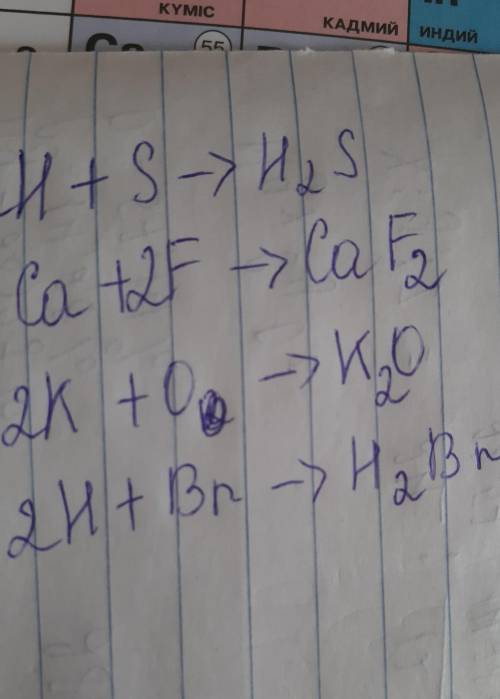 КҮМІС
КАДМИЙ
ИНДИЙ
55
H + S → H₂S
Ca + 2F → CaF₂
2K + O → K₂O
2H + Br → H₂Br